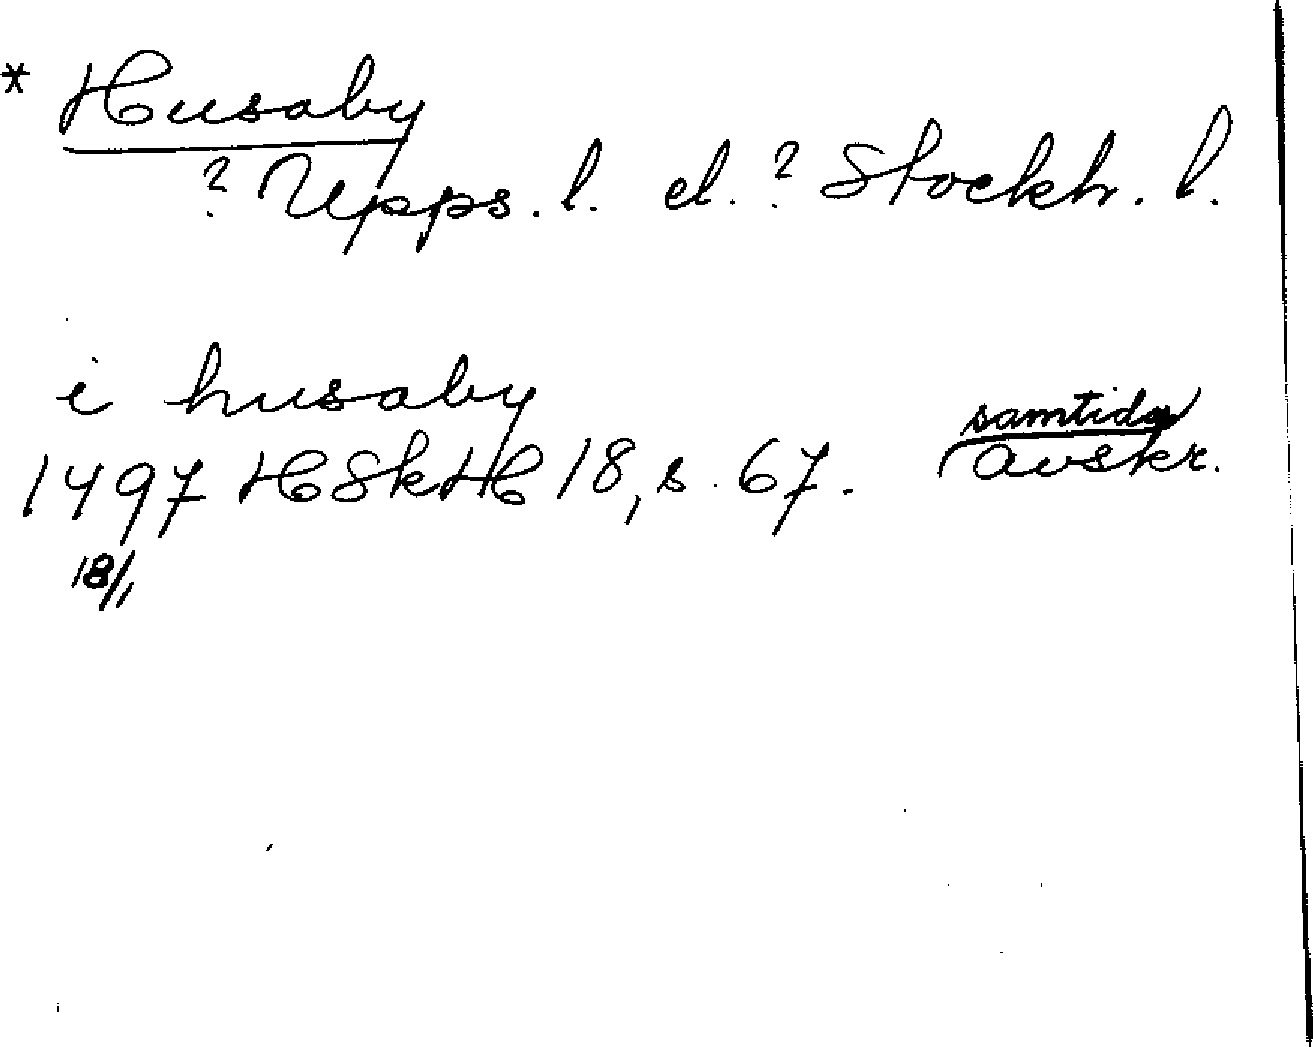 * Husaby
? Upps. l. el. ? Stockh. l.
i husaby
samtida
1497 HSkH 18, s. 67. avskr.
18/1